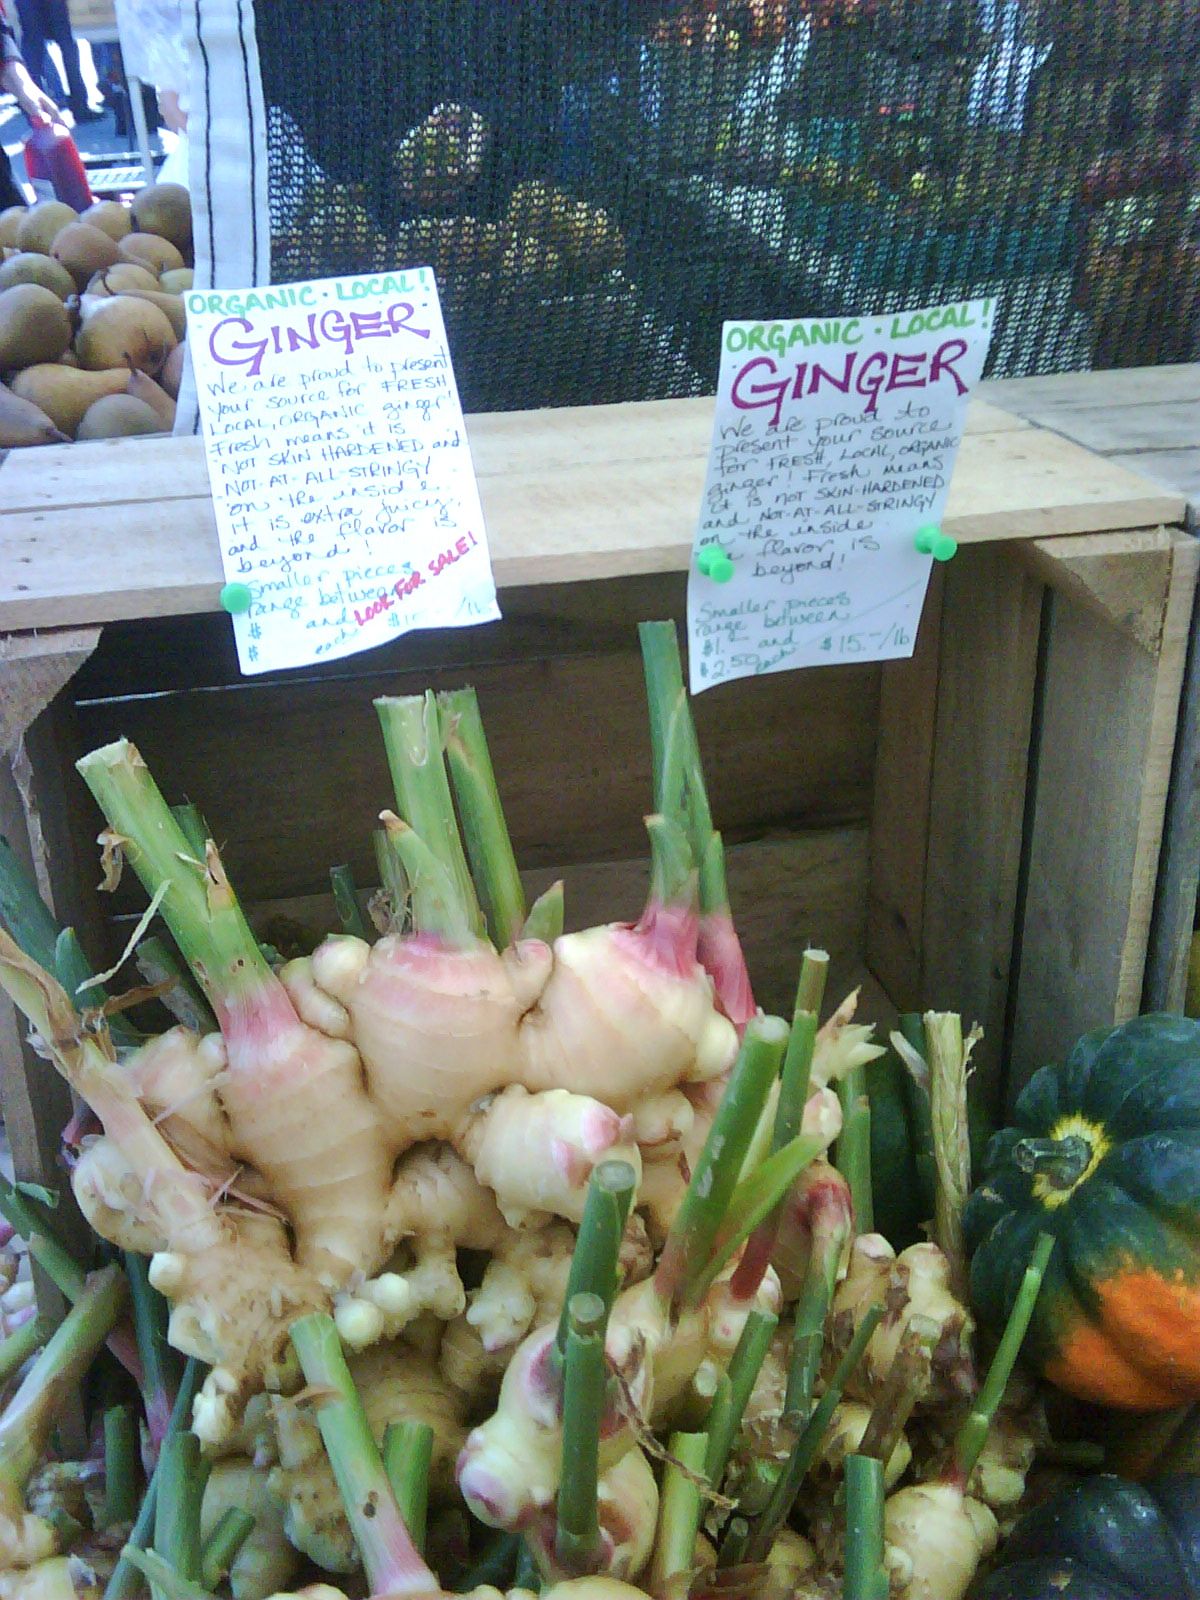 ORGANIC · LOCAL!
GINGER
We are proud to present
your source for FRESH
LOCAL, ORGANIC ginger!
Fresh means it is
NOT SKIN HARDENED and
NOT-AT-ALL-STRINGY
on the inside.
it is extra juicy,
and the flavor is
beyond!
Smaller pieces
range between
$ and LOOK FOR SALE!
$ each /lb
ORGANIC · LOCAL!
GINGER
We are proud to
present your source
for FRESH, LOCAL, ORGANIC
ginger! Fresh means
it is NOT SKIN-HARDENED
and NOT-AT-ALL-STRINGY
on the inside
flavor is
beyond!
Smaller pieces
range between
$1.- and
$2.50 each $15.-/lb